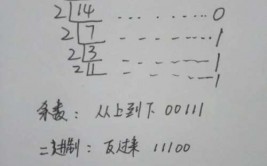 2 14 ...... 0
2 7 ------ 1
2 3 ------ 1
2 1 ------ 1
余数: 从上到下 00111
二进制: 反过来 11100